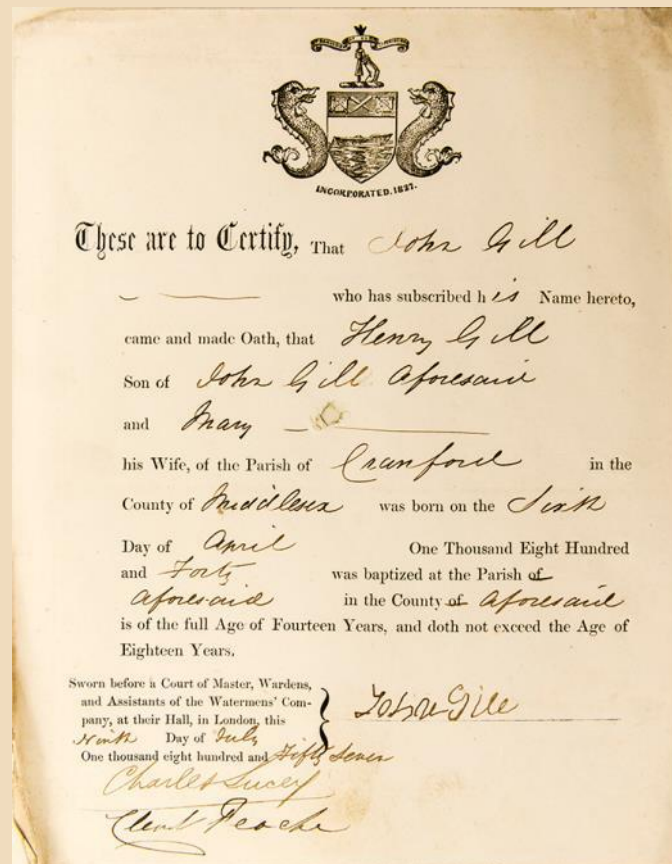 INCORPORATED. 1827.
These are to Certify, That John Gill
who has subscribed his Name hereto,
came and made Oath, that Henry Gill
Son of John Gill Aforesaid
and Mary
his Wife, of the Parish of Cranford in the
County of Middlesex was born on the Sixth
Day of April One Thousand Eight Hundred
and Forty was baptized at the Parish of
Aforesaid in the County of Aforesaid
is of the full Age of Fourteen Years, and doth not exceed the Age of
Eighteen Years.
Sworn before a Court of Master, Wardens,
and Assistants of the Watermen's Com-
pany, at their Hall, in London, this
Ninth Day of July
One thousand eight hundred and Fifty Seven
John Gill
Charles Lucey